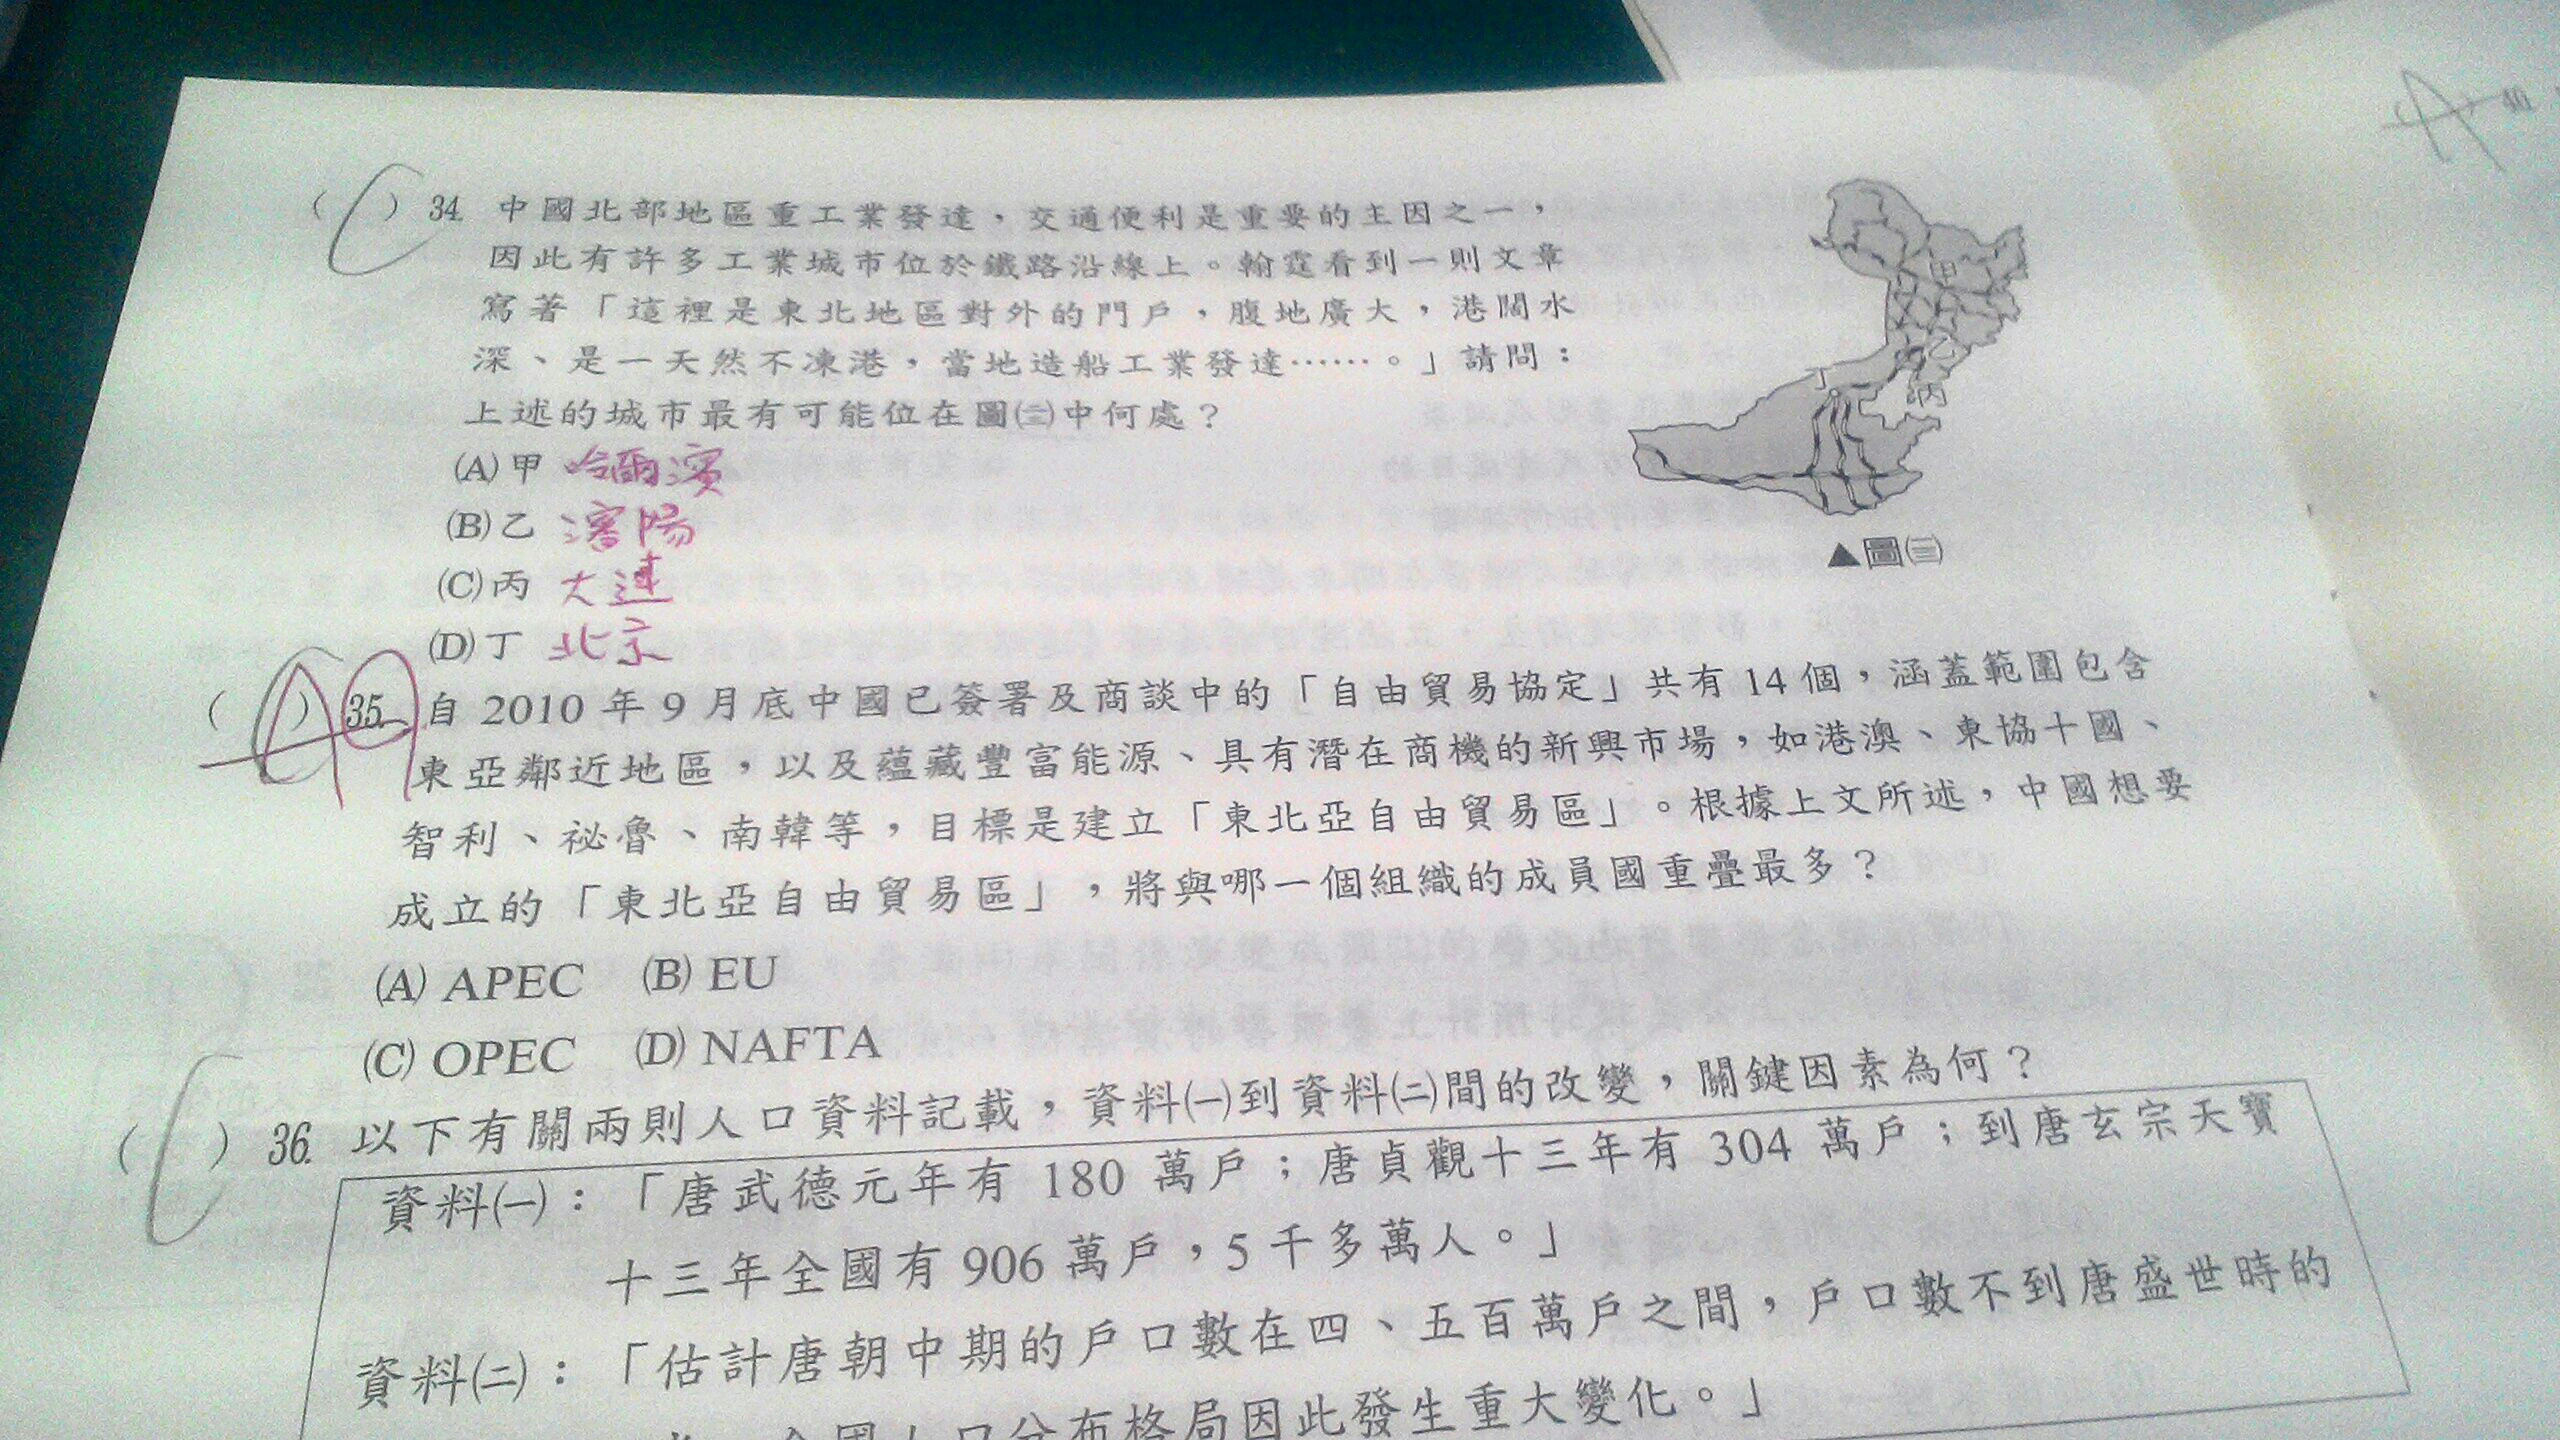 (C) 34. 中國北部地區重工業發達，交通便利是重要的主因之一，
因此有許多工業城市位於鐵路沿線上。翰霆看到一則文章
寫著「這裡是東北地區對外的門戶，腹地廣大，港闊水
深、是一天然不凍港，當地造船工業發達……。」請問：
上述的城市最有可能位在圖㈢中何處？
(A) 甲 哈爾濱
(B) 乙 瀋陽
(C) 丙 大連
(D) 丁 北京
甲
乙
丙
丁
▲圖㈢
(A) 35. 自 2010 年 9 月底中國已簽署及商談中的「自由貿易協定」共有 14 個，涵蓋範圍包含
東亞鄰近地區，以及蘊藏豐富能源、具有潛在商機的新興市場，如港澳、東協十國、
智利、祕魯、南韓等，目標是建立「東北亞自由貿易區」。根據上文所述，中國想要
成立的「東北亞自由貿易區」，將與哪一個組織的成員國重疊最多？
(A) APEC (B) EU
(C) OPEC (D) NAFTA
(C) 36. 以下有關兩則人口資料記載，資料㈠到資料㈡間的改變，關鍵因素為何？
資料㈠：「唐武德元年有 180 萬戶；唐貞觀十三年有 304 萬戶；到唐玄宗天寶
十三年全國有 906 萬戶，5 千多萬人。」
資料㈡：「估計唐朝中期的戶口數在四、五百萬戶之間，戶口數不到唐盛世時的
全國人口分布格局因此發生重大變化。」
A 40.